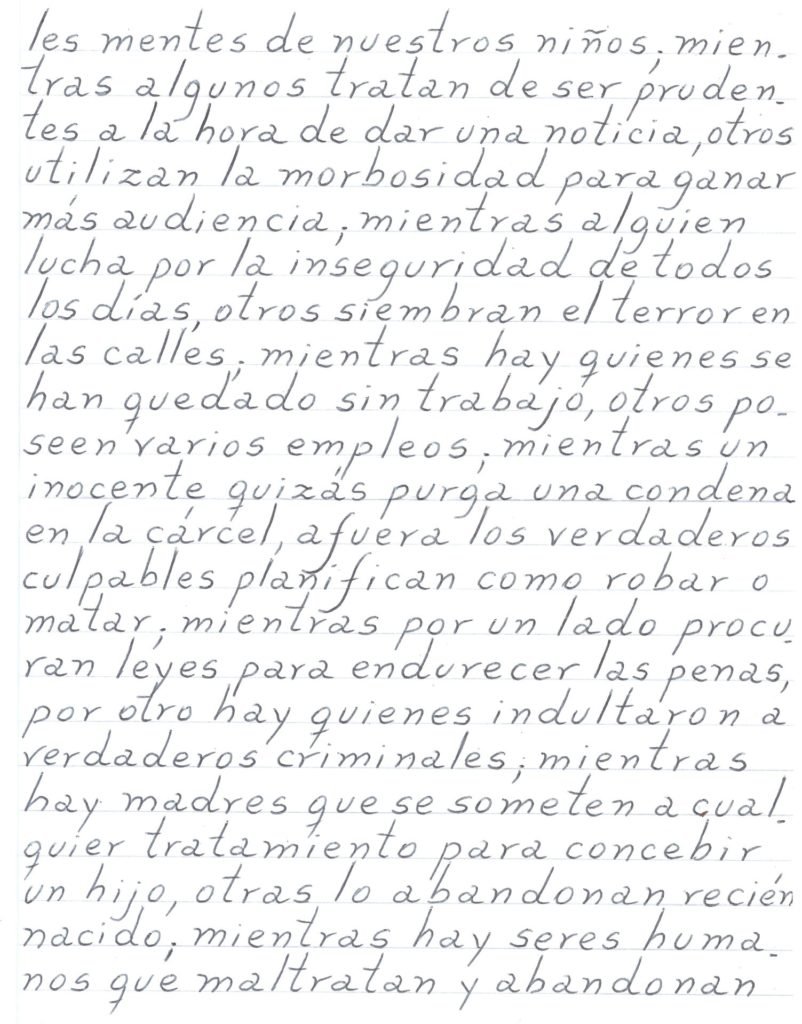 les mentes de nuestros niños; mien-
tras algunos tratan de ser pruden-
tes a la hora de dar una noticia, otros
utilizan la morbosidad para ganar
más audiencia; mientras alguien
lucha por la inseguridad de todos
los días, otros siembran el terror en
las calles; mientras hay quienes se
han quedado sin trabajo, otros po-
seen varios empleos; mientras un
inocente quizás purga una condena
en la cárcel, afuera los verdaderos
culpables planifican como robar o
matar; mientras por un lado procu-
ran leyes para endurecer las penas,
por otro hay quienes indultaron a
verdaderos criminales; mientras
hay madres que se someten a cual-
quier tratamiento para concebir
un hijo, otras lo abandonan recién
nacido; mientras hay seres huma-
nos que maltratan y abandonan